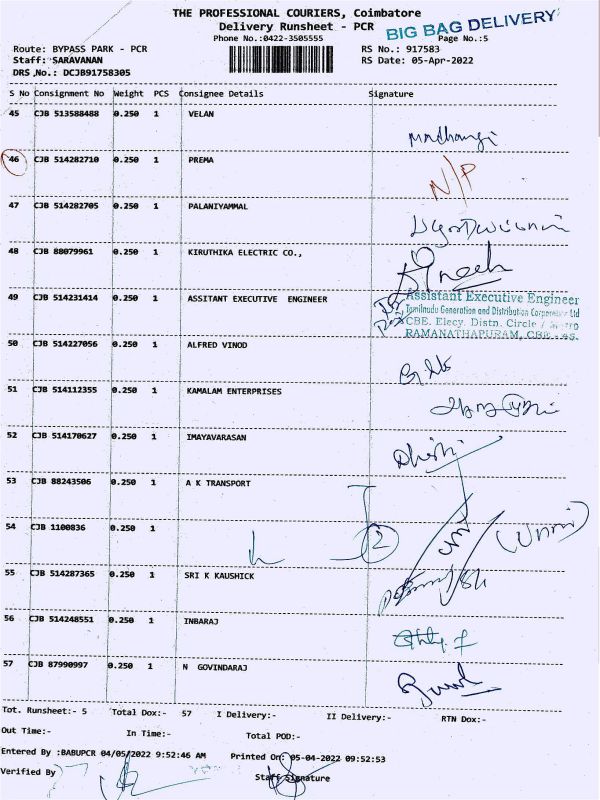 THE PROFESSIONAL COURIERS, Coimbatore
Delivery Runsheet - PCR
BIG BAG DELIVERY
Phone No.:0422-3505555 Page No.:5
Route: BYPASS PARK - PCR RS No.: 917583
Staff: SARAVANAN RS Date: 05-Apr-2022
DRS No.: DCJB91758305
S No Consignment No Weight PCS Consignee Details Signature
45 CJB 513588488 0.250 1 VELAN
Mathangi
46 CJB 514282710 0.250 1 PREMA
N/P
47 CJB 514282705 0.250 1 PALANIYAMMAL
48 CJB 88079961 0.250 1 KIRUTHIKA ELECTRIC CO.,
49 CJB 514231414 0.250 1 ASSITANT EXECUTIVE ENGINEER
Assistant Executive Engineer
Tamilnadu Generation and Distribution Corporation Ltd
CBE. Elecy. Distn. Circle / Metro
RAMANATHAPURAM, CBE - 45.
50 CJB 514227056 0.250 1 ALFRED VINOD
51 CJB 514112355 0.250 1 KAMALAM ENTERPRISES
52 CJB 514170627 0.250 1 IMAYAVARASAN
53 CJB 88243506 0.250 1 A K TRANSPORT
54 CJB 1100836 0.250 1
2
55 CJB 514287365 0.250 1 SRI K KAUSHICK
56 CJB 514248551 0.250 1 INBARAJ
57 CJB 87990997 0.250 1 N GOVINDARAJ
Tot. Runsheet:- 5 Total Dox:- 57 I Delivery:- II Delivery:- RTN Dox:-
Out Time:- In Time:- Total POD:-
Entered By :BABUPCR 04/05/2022 9:52:46 AM Printed On: 05-04-2022 09:52:53
Verified By Staff Signature